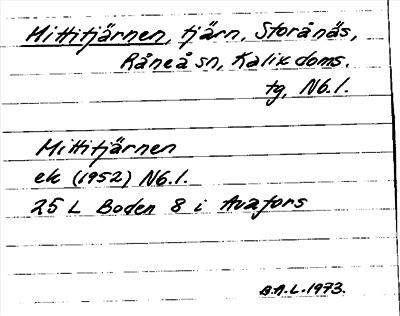 Mittitjärnen, tjärn, Storånäs,
Råneå sn, Kalix doms.
tg, Nb.l.
Mittitjärnen
ek (1952) Nb.l.
25 L Boden 8 i Avafors
B.A.L. 1973.